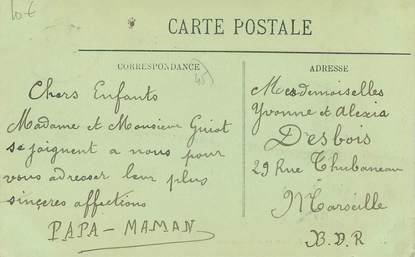 10€
CARTE POSTALE
CORRESPONDANCE
ADRESSE
Chers Enfants
Madame et Monsieur Guiot
se joignent a nous pour
vous adresser leur plus
sincères affections
PAPA - MAMAN
Mesdemoiselles
Yvonne et Alexia
Desbois
29 Rue Thubaneau
Marseille
B.D.R